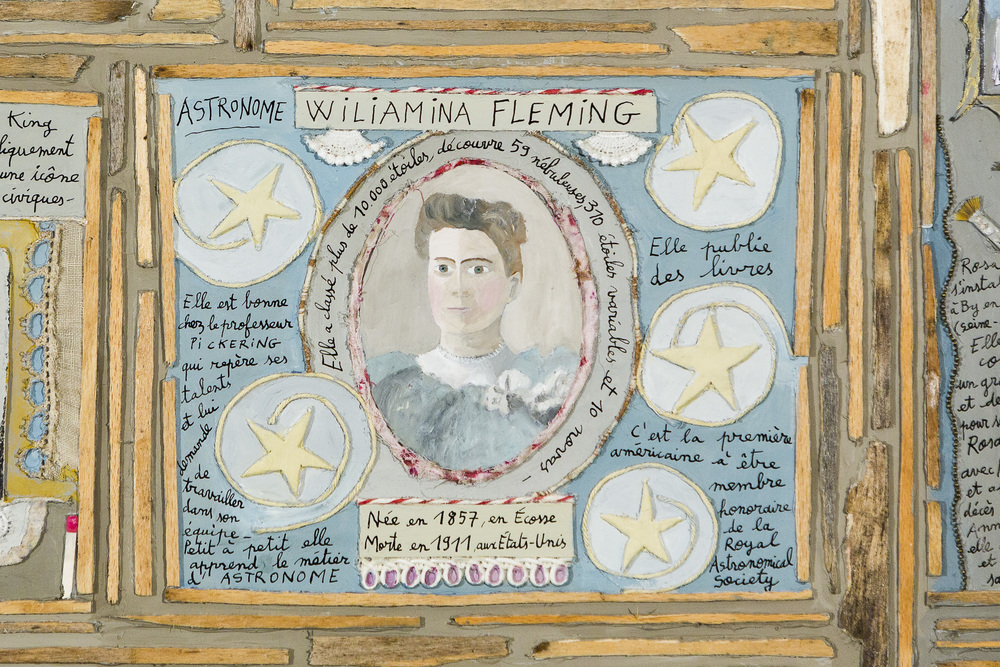 King
liquement
une icône
civiques-
ASTRONOME
WILIAMINA FLEMING
Elle a classé plus de 10.000 étoiles, découvre 59 nébuleuses, 310 étoiles variables et 10 novas-
Elle est bonne
chez le professeur
PICKERING
qui repère ses
talents
et lui
demande
de
travailler
dans son
équipe-
Petit à petit elle
apprend le métier
d'ASTRONOME
Elle publie
des livres
C'est la première
américaine à être
membre
honoraire
de la
Royal
Astronomical
Society
Née en 1857, en Écosse
Morte en 1911, aux États-Unis
Rosa
s'insta
à By en
(seine-
Elle
co
un gra
et de
pour s
Rosa
avec l
et a
décès
Ann
elle
et
sa